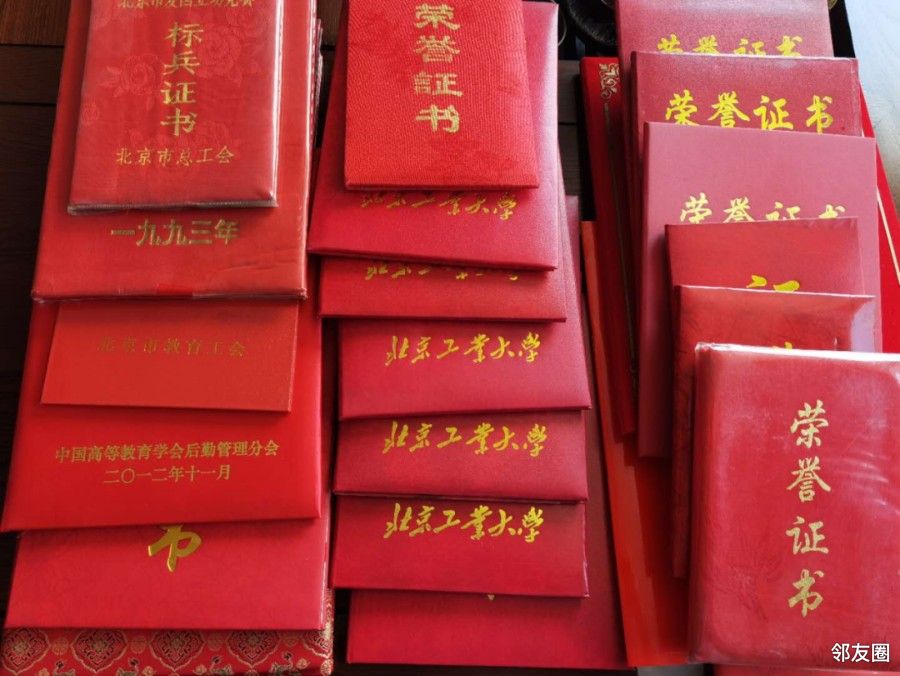 标兵证书
北京市总工会
一九九三年
北京市教育工会
中国高等教育学会后勤管理分会
二〇一二年十一月
荣誉証书
北京工业大学
北京工业大学
北京工业大学
北京工业大学
北京工业大学
荣誉证书
荣誉证书
荣誉证书
证
荣誉证书
邻友圈